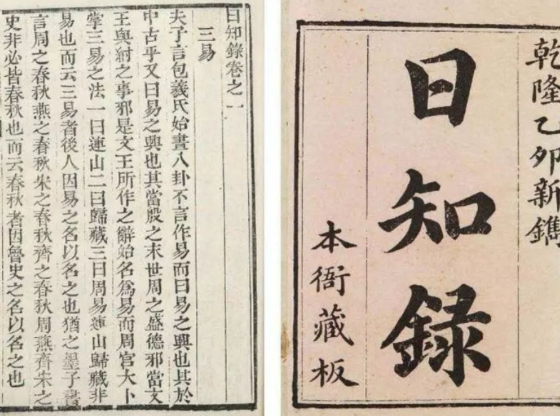 乾隆乙卯新鐫
日知錄
本衙藏板
日知錄卷之一
三易
夫子言包羲氏始畫八卦不言作易而曰易之興也其於
中古乎又曰易之興也其當殷之末世周之盛德邪當文
王與紂之事邪是文王所作之辭始名爲易而周官大卜
掌三易之法一曰連山二曰歸藏三曰周易連山歸藏非
易也而云三易者後人因易之名以名之也猶之墨子書
言周之春秋燕之春秋宋之春秋齊之春秋周燕齊宋之
史非必皆春秋也而云春秋者因魯史之名以名之也